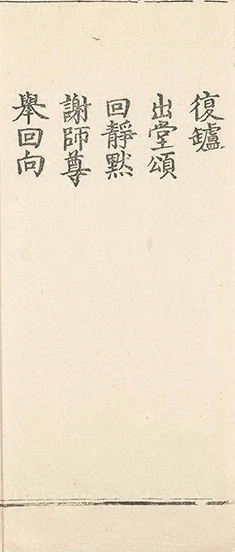 復鑪
出堂頌
回靜默
謝師尊
舉回向